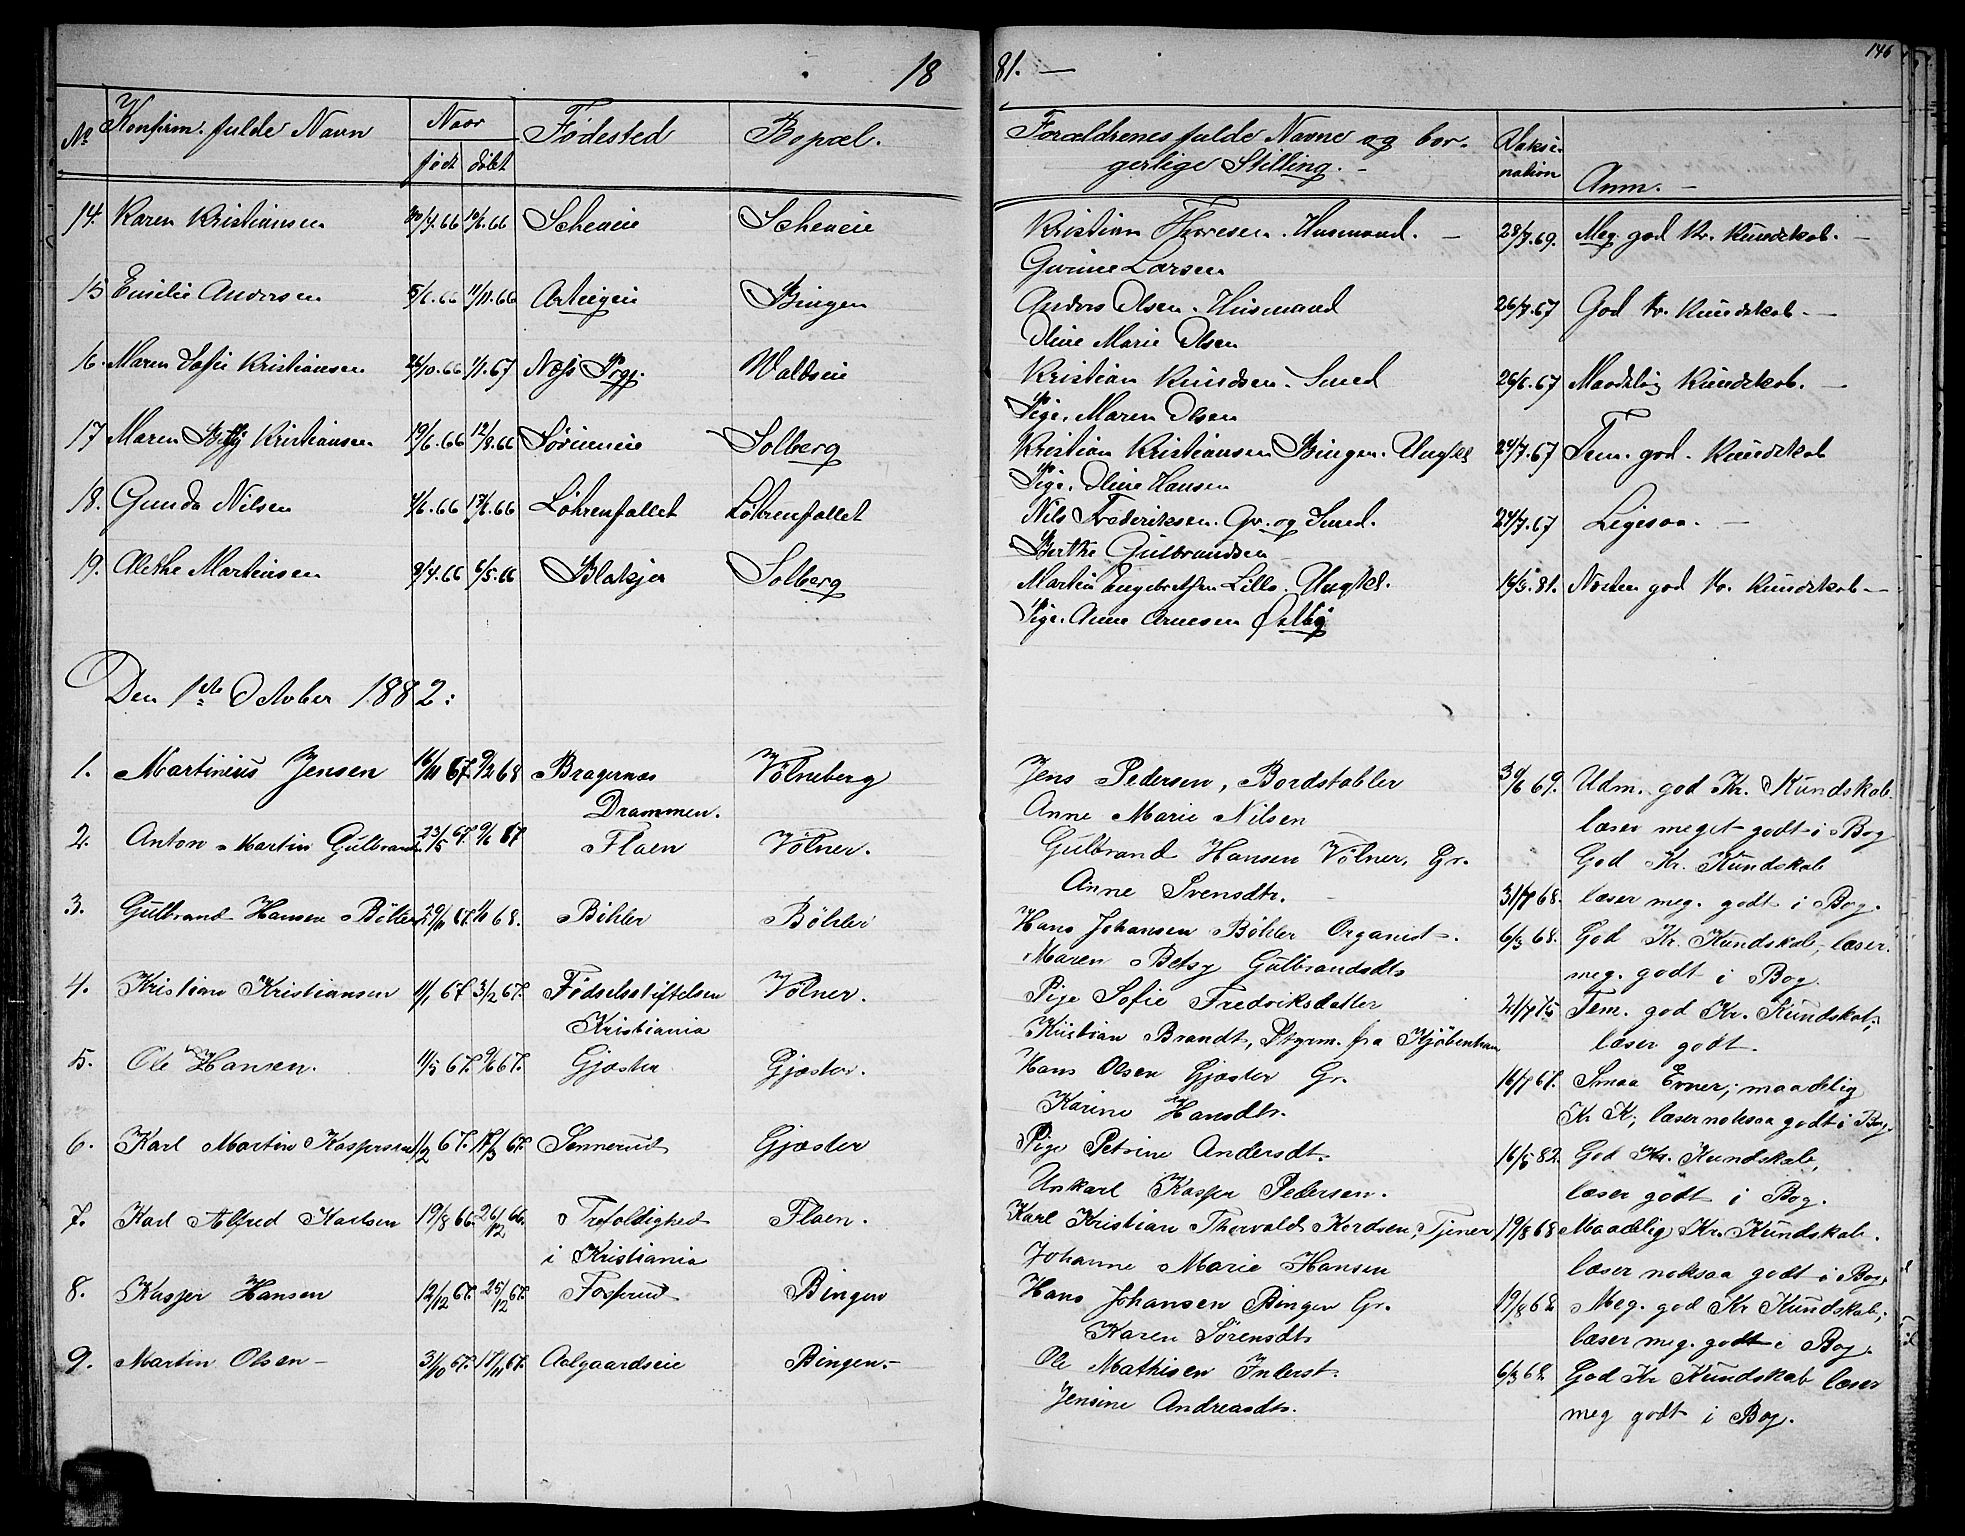 18
81. —
146
No
Konfirm. fulde Navn
Naar
født
døbt
Fødested
Bopæl.
Forældrenes fulde Navne og bor-
gerlige Stilling. -
Vaksi-
nation
Anm. -
14. Karen Kristiansen 66 66 Scheneie Scheneie Kristian Thoresen. Husmand. — 28/7.69. Meg. god Kr. Kundskab. —
Gurine Larsen
15 Emilie Andersen 11/11.66 Bingen Anders Olsen. Husmand 26/7.67 God Kr. Kundskab. —
Oline Marie Olsen
16. Maren Sofie Kristiansen 67 Næs Prgj. Waldseie Kristian Knudsen. Smed 26/6.67 Maadelig Kundskab. —
Pige. Maren Olsen
17 Maren Betsy Kristiansen 19/6.66 12/8.66 Solberg Kristian Kristiansen Bingen. Ungkl 24/7.67 Tem. god. Kundskab
Pige. Oline Hansen
18. Gunda Nilsen 66 66 Løkrenfallet Løkrenfallet Nils Frederiksen. Gr. og Smed. 24/7.67 Ligesaa. —
Berthe Gulbrandsen
19. Alethe Martinsen 9/4.66 6/5.66 Blakjer Solberg Martin Engebretsen Lillo. Ungkl. 81. Noken god Kr. Kundskab —
Pige. Anne Arnesen Østby
Den 1ste October 1882:
1. Martinius Jensen 16/11 67. 9/2 68 Bragernæs Völneberg Jens Pedersen, Bordstabler 30/6 69. Udm. god Kr. Kundskab
Drammen. Anne Marie Nilsen læser meget godt i Bog
2. Anton Martin Gulbrands. 23/5 67. 9/6 67 Flaen Völner. Gulbrand Hansen Völner, Gr. God Kr. Kundskab
Anne Svensdtr. 31/7 68. læser meg. godt i Bog.
3. Gulbrand Hansen Böhler 29/11 67. 68. Böhler Böhler Hans Johansen Böhler Organist. 6/3 68. God Kr. Kundskab, læser
Maren Betsy Gulbrandsdtr meg. godt i Bog
4. Kristian Kristiansen 1/1 67 3/2 67. Födselsstiftelsen Völner. Pige Sofie Fredriksdatter 21/7 75 Tem. god Kr. Kundskab,
Kristiania Kristian Brandt, Styrm. fra Kjöbenhavn læser godt.
5. Ole Hansen. 1/5 67. 9/6 67. Gjæster Gjæster. Hans Olsen Gjæster Gr. 16/7 67. Smaa Evner, maadelig
Karine Hansdtr. Kr K, læser noksaa godt i Bog.
6. Karl Martin Kaspersen 1/2 67. 17/3 67. Sennerud Gjæster Pige Petrine Andersdt. 16/5 82. God Kr. Kundskab,
Unkarl Kasper Pedersen. læser godt i Bog.
7. Karl Alfred Karlsen 19/8 66. 26/12 66. Trefoldighed Flaen. Karl Kristian Thorvald Kordsen, Tjener 19/8 68 Maadelig Kr. Kundskab.
i Kristiania Johanne Marie Hansen læser noksaa godt i Bog.
8. Kasper Hansen 12/12 67. 25/12 67. Fosserud Bingen Hans Johansen Bingen Gr. 19/8 68 Meg. god Kr Kundskab,
Karen Sørensdtr læser meg. godt i Bog.
9. Martin Olsen - 31/10 67. 17/11 67. Aalgaardseie Bingen. - Ole Mathisen Inderst. 6/3 68 God Kr Kundskab læser
Jensine Andreasdtr. meg godt i Bog.